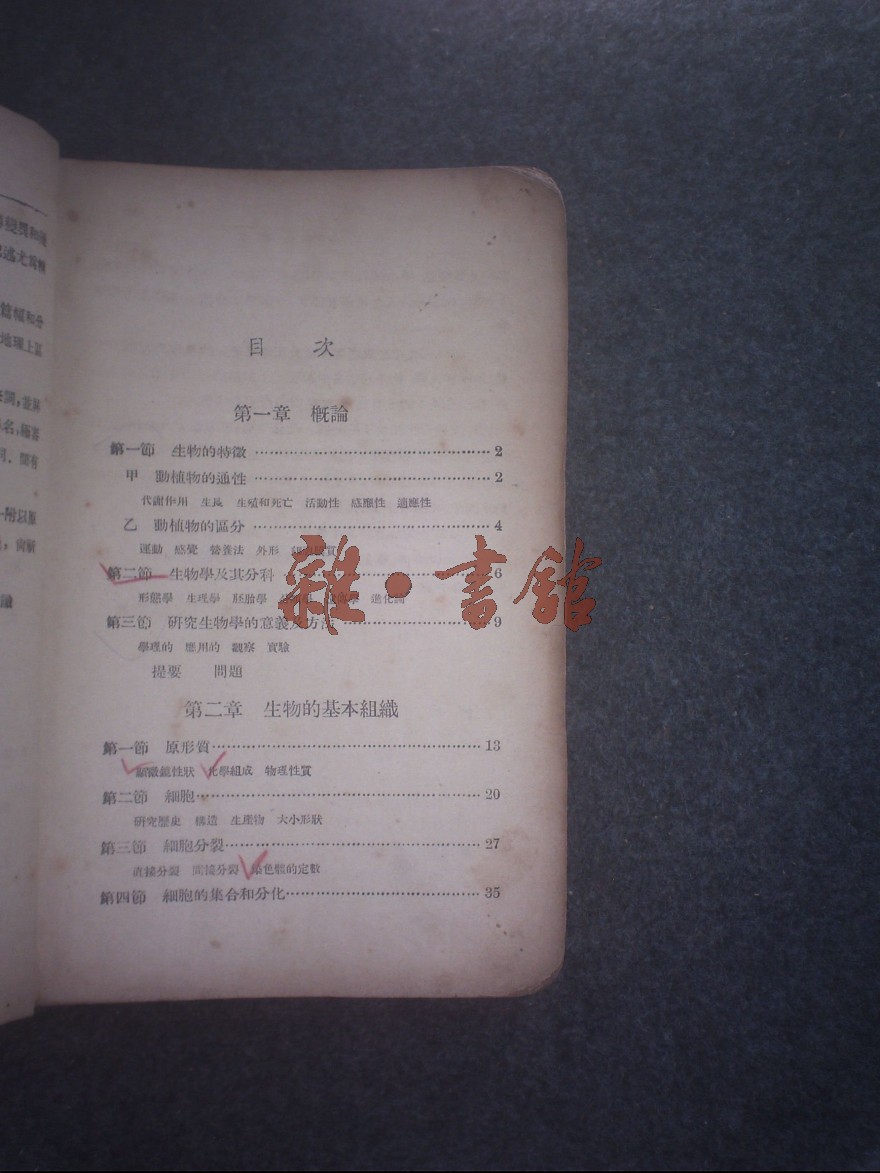 尋變異和遺
述尤爲
篇幅和分
地理上區
附以原
目 次
第一章 概論
第一節 生物的特徵 2
甲 動植物的通性 2
代謝作用 生長 生殖和死亡 活動性 感應性 適應性
乙 動植物的區分 4
運動 感覺 營養法 外形
第二節 生物學及其分科 6
形態學 生理學 胚胎學 進化論
第三節 研究生物學的意義及方法 9
學理的 應用的 觀察 實驗
提要 問題
第二章 生物的基本組織
第一節 原形質 13
顯微鏡性狀 化學組成 物理性質
第二節 細胞 20
研究歷史 構造 生產物 大小形狀
第三節 細胞分裂 27
直接分裂 間接分裂 染色體的定數
第四節 細胞的集合和分化 35
雜·書館